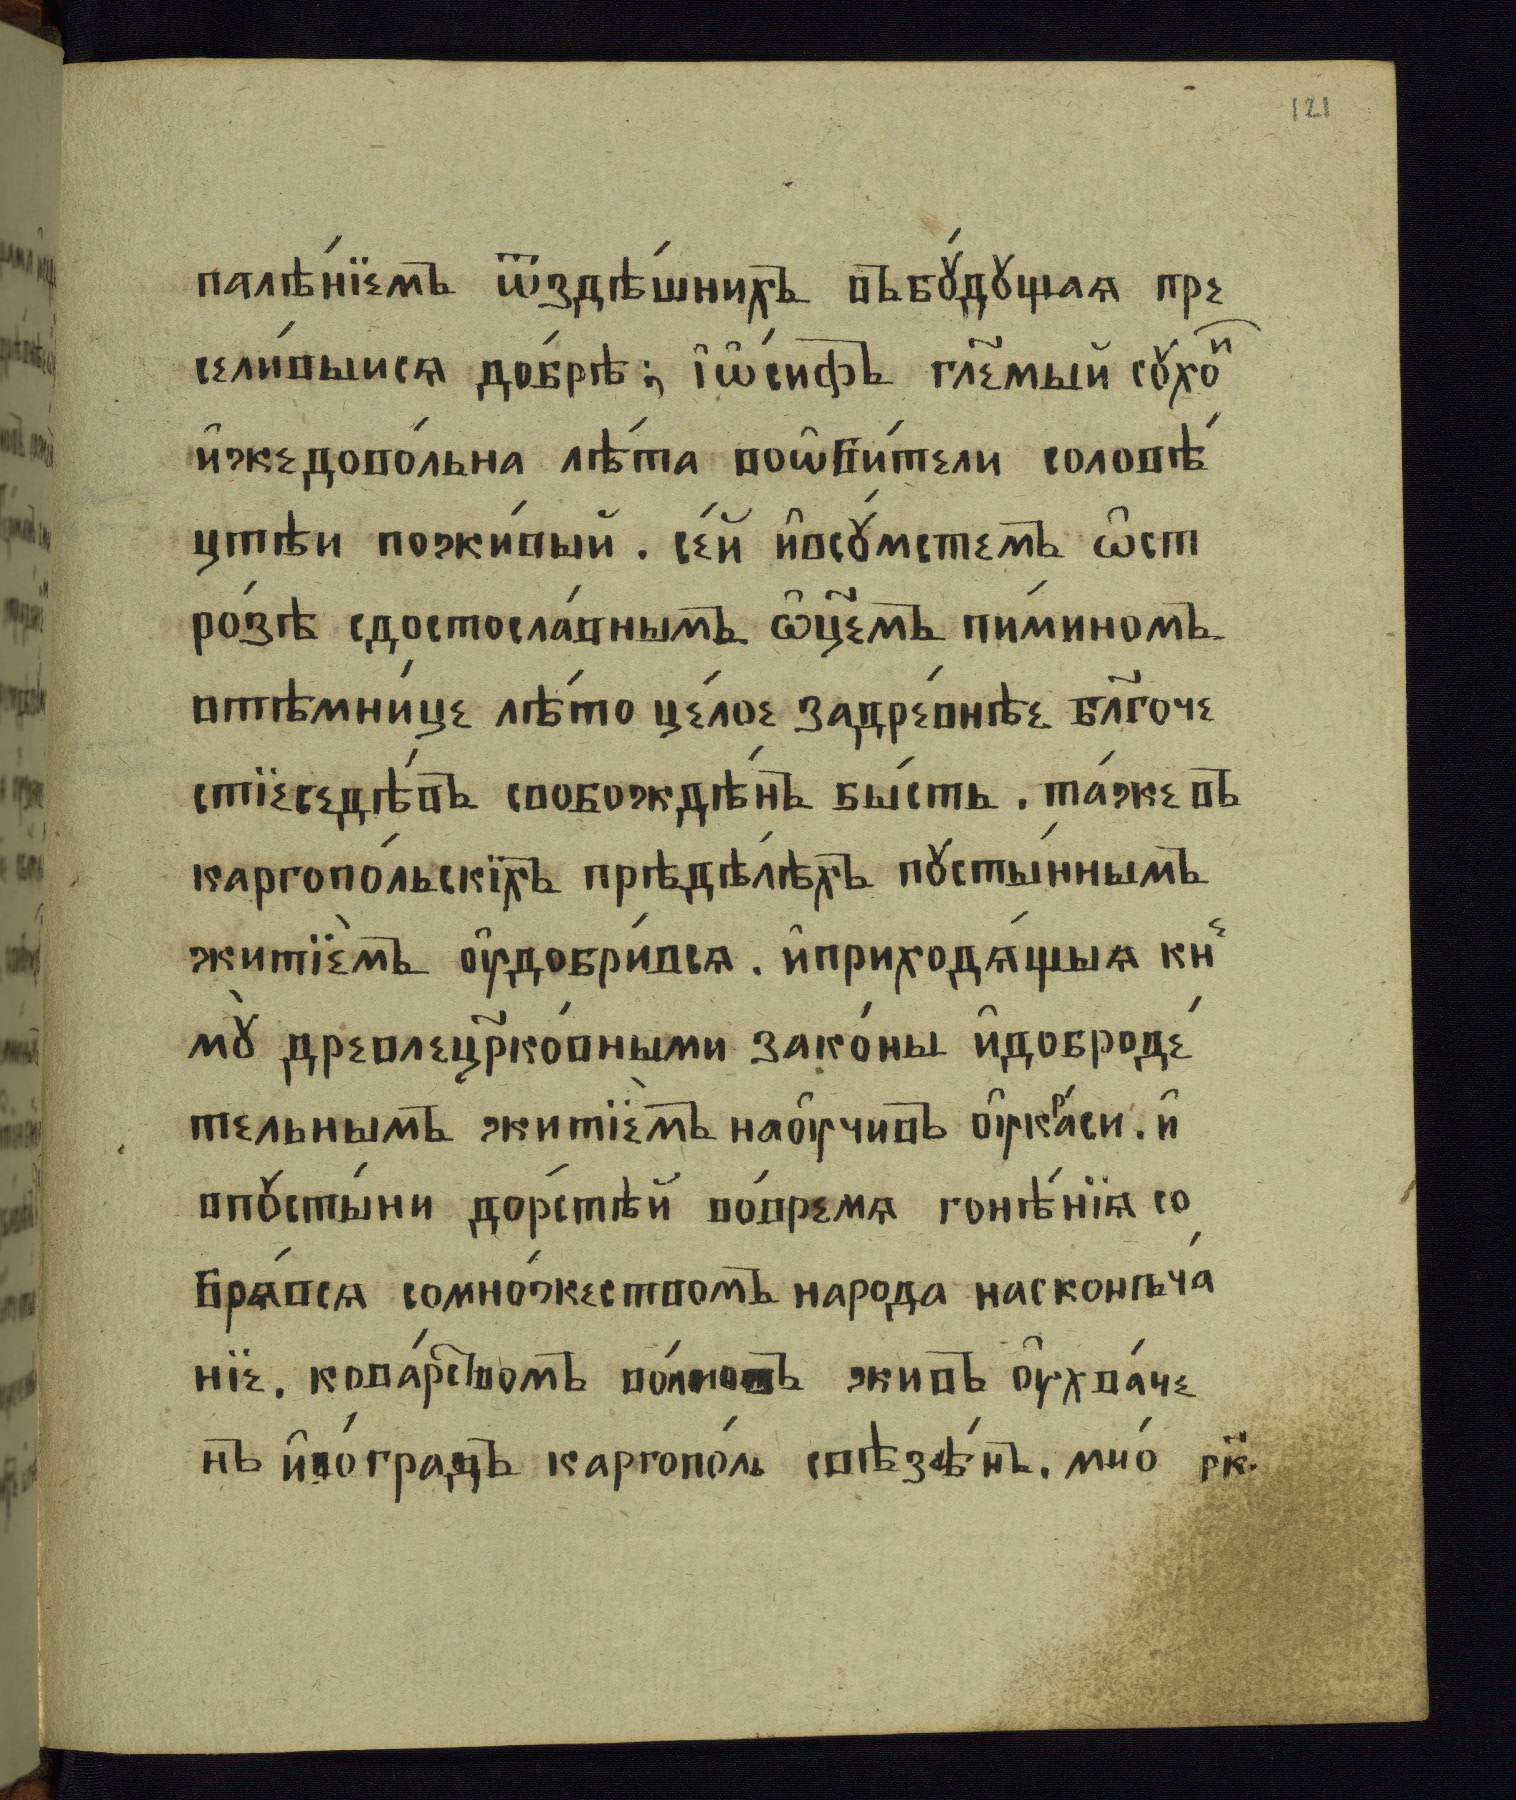 121
палѣ́нїемъ ѿздѣ́шнихъ въбꙋ́дꙋщаѧ пре
сели́выисѧ до́брѣ; і҆ѡ҆́сифъ гл҃емый сꙋхо́й
и҆жедово́льна лѣ́та воѡ҆би́тели соловѣ́
цтѣи пожи́вый. се́й и҆всꙋ́мстемъ ѡ҆ст
ро́зѣ сдостосла́внымъ ѡ҆ц҃емъ пи́миномъ
втѣмни́це лѣ́то це́лое задре́внѣе бл҃гоче
стїеседѣ́въ свобожде́нъ бы́сть. та́же въ
каргопо́льскїхъ прѣдѣ́лѣхъ пꙋсты́ннымъ
житїѐмъ оу҆добри́всѧ. и҆приходѧ́щыѧ кне
мꙋ̀ древлецр҃ко́вными зако́ны и҆доброде́
тельнымъ житїѐмъ наоу҆чивъ оу҆кра́си. и҆
впꙋсты́ни до́рстѣй во́времѧ гонѣ́нїѧ со
бра́всѧ сомно́жествомъ народа насконьча́
нїе. кова́рствомъ живъ оу҆хва́че
нъ и҆во́градъ каргопо́ль свѣзѣ́нъ. мно́ рк҃.